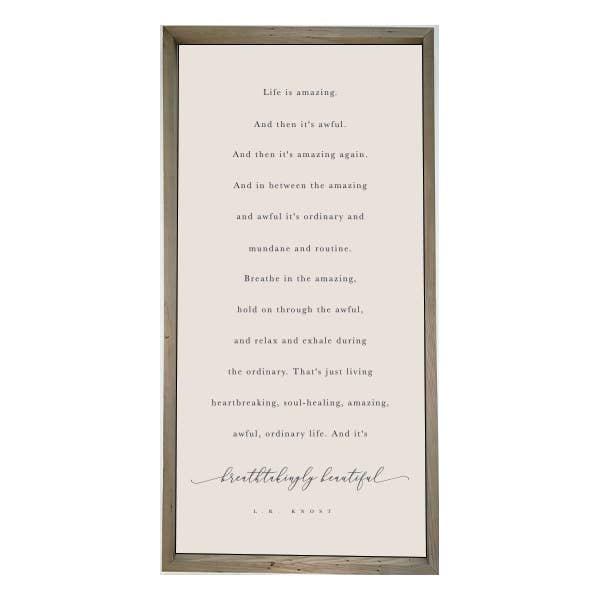 Life is amazing.
And then it's awful.
And then it's amazing again.
And in between the amazing
and awful it's ordinary and
mundane and routine.
Breathe in the amazing,
hold on through the awful,
and relax and exhale during
the ordinary. That's just living
heartbreaking, soul-healing, amazing,
awful, ordinary life. And it's
breathtakingly beautiful
L.R. KNOST